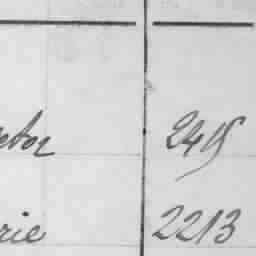 ctor 2415
rie 2213